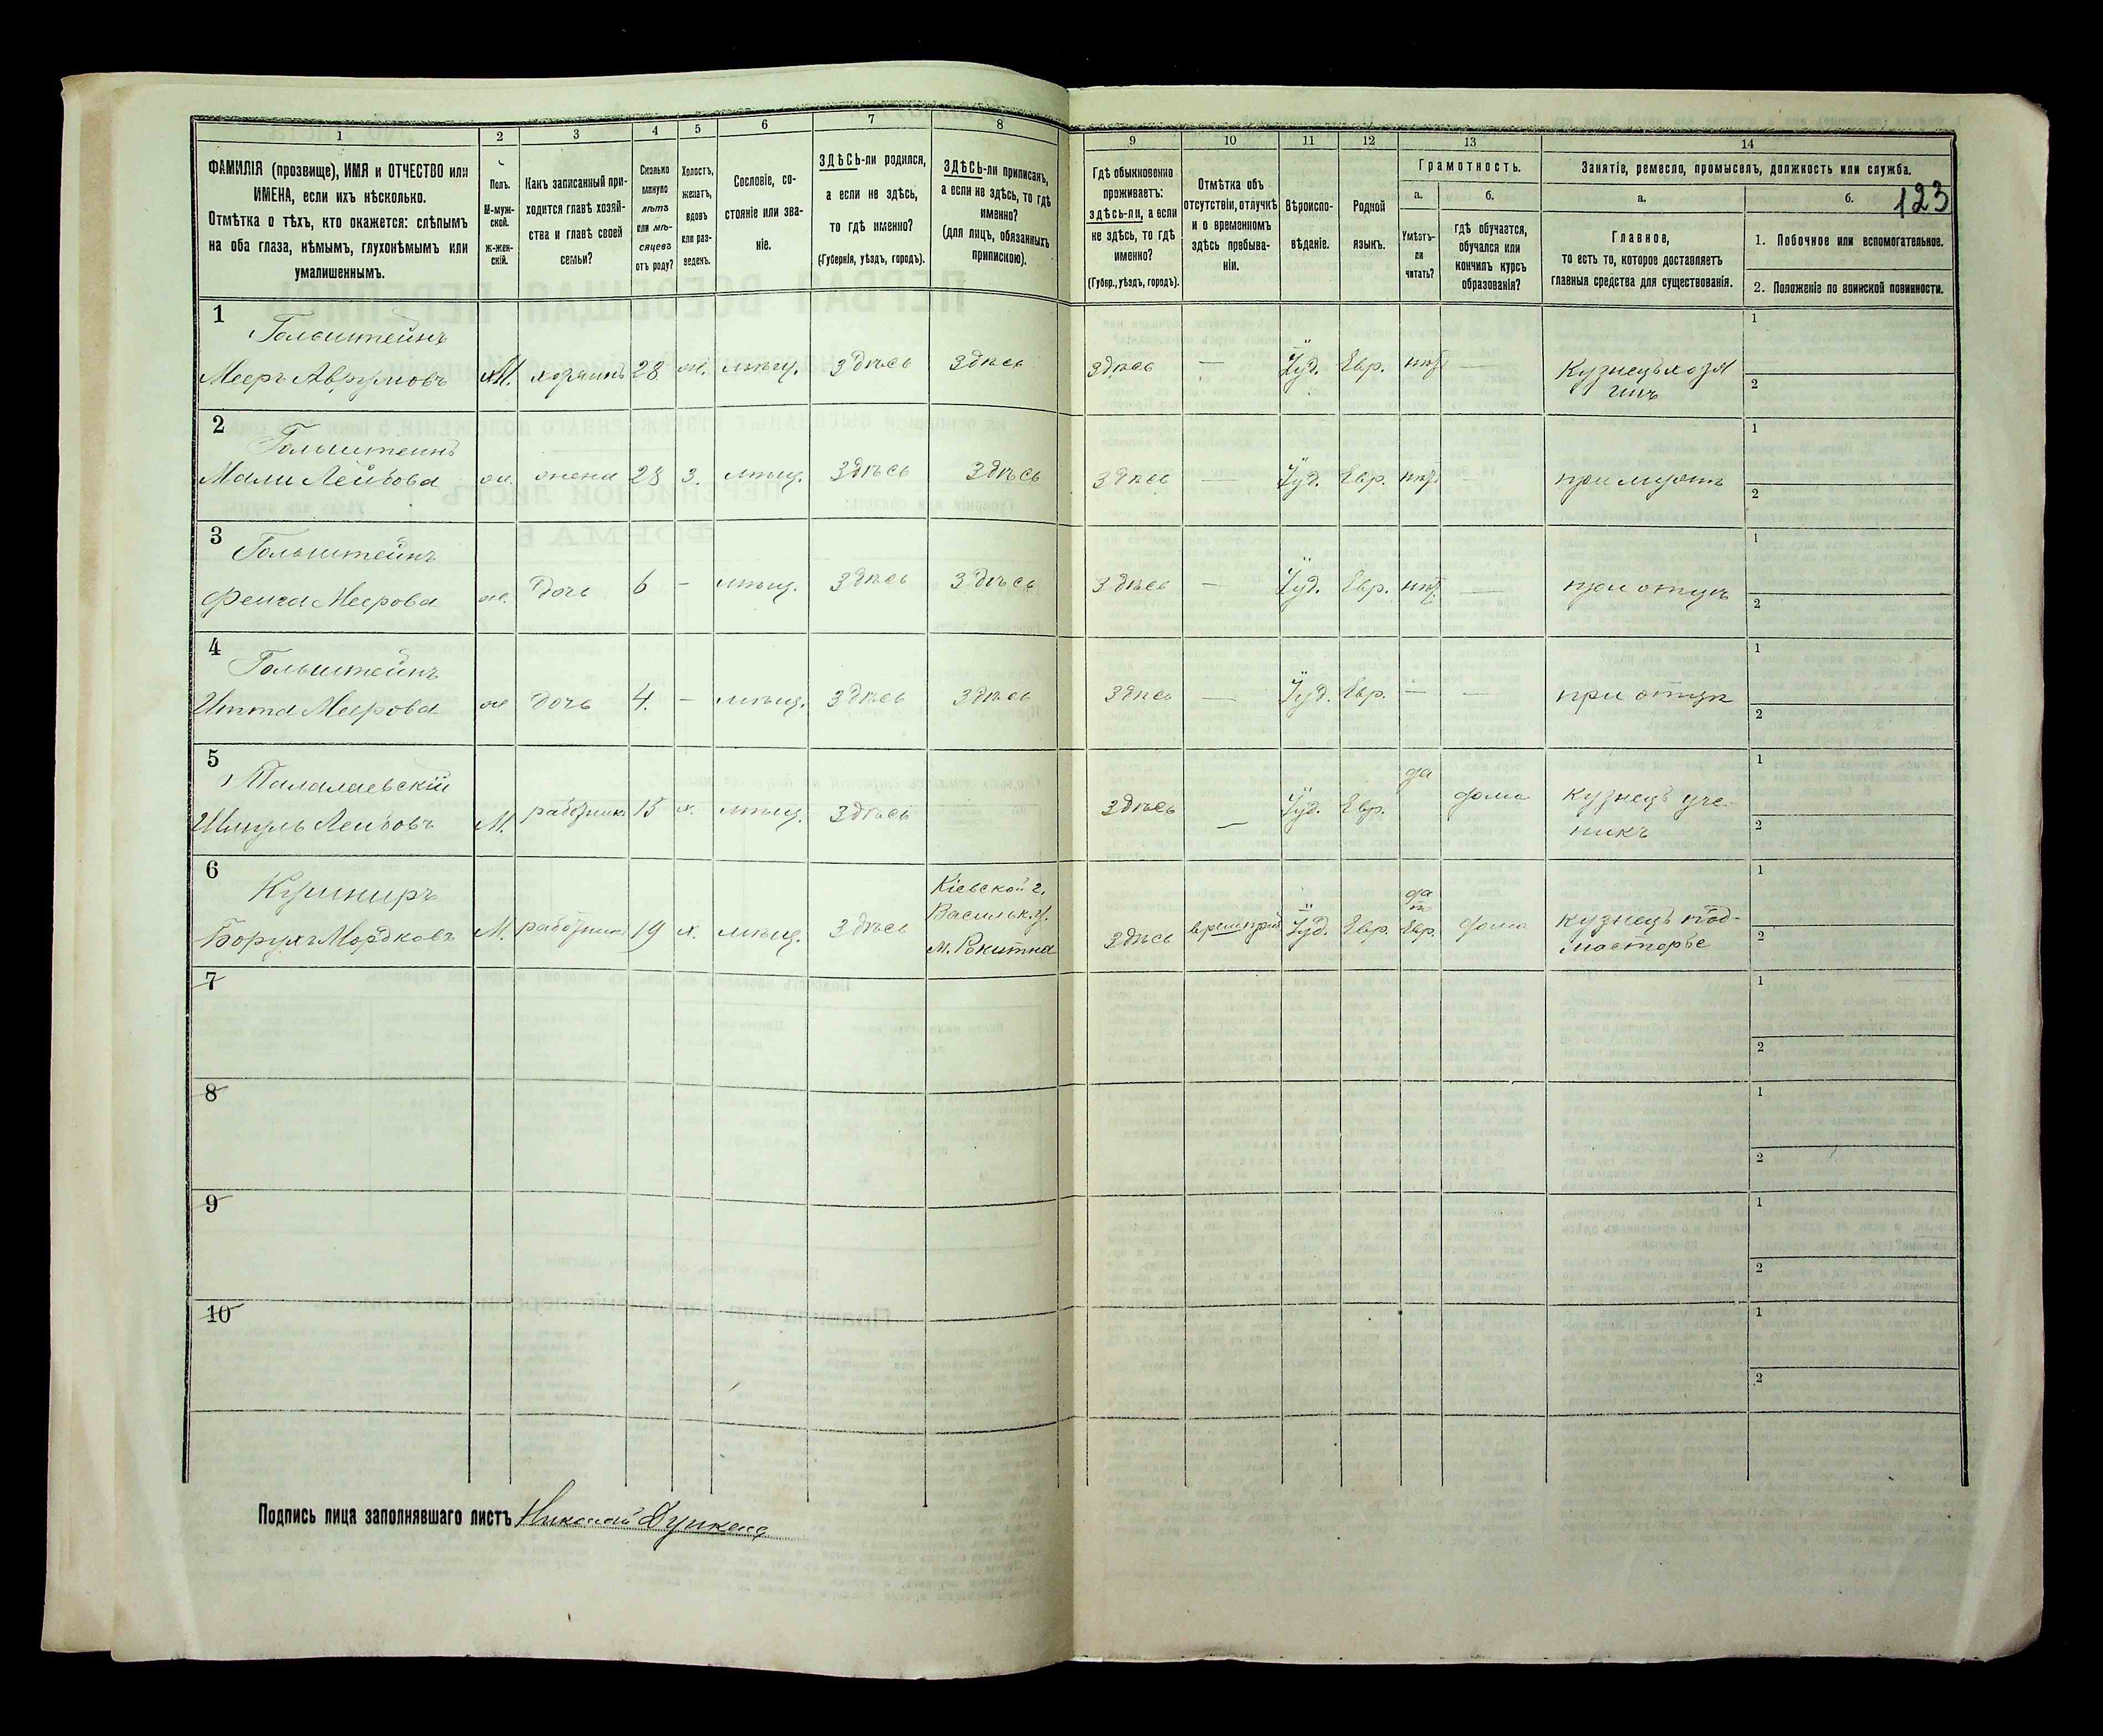 1 2 3 4 5 6 7 8 9 10 11 12 13 14
123
ФАМИЛІЯ (прозвище), ИМЯ и ОТЧЕСТВО или
ИМЕНА, если ихъ нѣсколько.
Отмѣтка о тѣхъ, кто окажется: слѣпымъ
на оба глаза, нѣмымъ, глухонѣмымъ или
умалишеннымъ.
Полъ.
М-муж-
ской.
ж-жен-
скій.
Какъ записанный при-
ходится главѣ хозяй-
ства и главѣ своей
семьи?
Сколько
минуло
лѣтъ
или мѣ-
сяцевъ
отъ роду?
Холостъ,
женатъ,
вдовъ
или раз-
веденъ.
Сословіе, со-
стояніе или зва-
ніе.
ЗДѢСЬ-ли родился,
а если не здѣсь,
то гдѣ именно?
(Губернія, уѣздъ, городъ).
ЗДѢСЬ-ли приписанъ,
а если не здѣсь, то гдѣ
именно?
(для лицъ, обязанныхъ
припискою).
Гдѣ обыкновенно
проживаетъ:
здѣсь-ли, а если
не здѣсь, то гдѣ
именно?
(Губер., уѣздъ, городъ).
Отмѣтка объ
отсутствіи, отлучкѣ
и о временномъ
здѣсь пребыва-
ніи.
Вѣроиспо-
вѣданіе.
Родной
языкъ.
Грамотность.
а.
Умѣетъ-
ли
читать?
б.
гдѣ обучается,
обучался или
кончилъ курсъ
образованія?
Занятіе, ремесло, промыселъ, должность или служба.
а.
Главное,
то есть то, которое доставляетъ
главныя средства для существованія.
б.
1. Побочное или вспомогательное.
2. Положеніе по воинской повинности.
1
Гольштейнъ
Мееръ Аврумовъ М. хозяинъ 28 ж. мѣщ. здѣсь здѣсь здѣсь — Іуд. Евр. нѣт — Кузнецъ хозя
инъ
1
2
2
Гольштейнъ
Мали Лейбова ж. жена 28 з. мѣщ. здѣсь здѣсь здѣсь — Іуд. Евр. нѣт — при мужѣ
1
2
3
Гольштейнъ
Меерова ж. дочь 6 — мѣщ. здѣсь здѣсь здѣсь — Іуд. Евр. нѣт. — при отцѣ
1
2
4
Гольштейнъ
Итта Меерова ж дочь 4. — мѣщ. здѣсь здѣсь здѣсь — Іуд. Евр. — — при отцѣ
1
2
5
Талалаевскій
Шмуль Лейбовъ М. работникъ 15 х. мѣщ. здѣсь здѣсь — Іуд. Евр. да дома кузнецъ уче-
никъ
1
2
6
Кушниръ
Борухъ Мордковъ М. работникъ 19 х. мѣщ. здѣсь
Кіевской г.
Васильк. у.
м. Рокитна
здѣсь Іуд. Евр.
да
Евр. дома
кузнецъ под-
мастерье
1
2
7
1
2
8
1
2
9
1
2
10
1
2
Подпись лица заполнявшаго листъ Николай